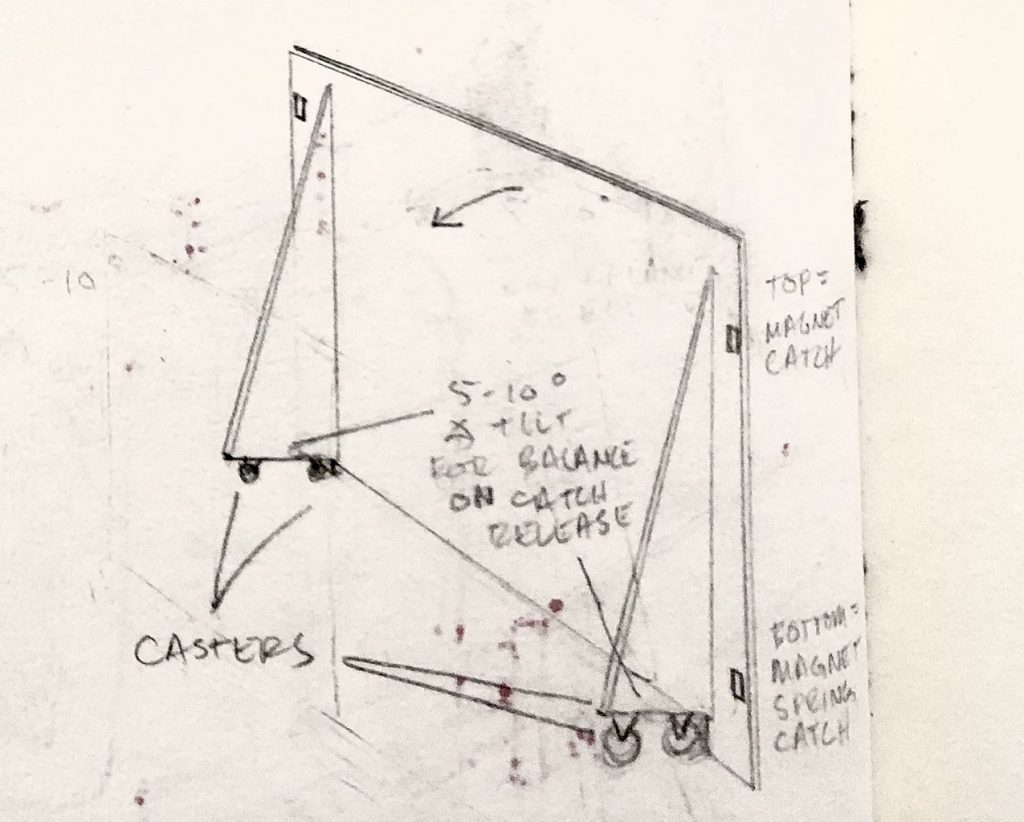 -10°
TOP=
MAGNET
CATCH
5-10°
∡ TILT
FOR BALANCE
ON CATCH
RELEASE
CASTERS
BOTTOM=
MAGNET
SPRING
CATCH